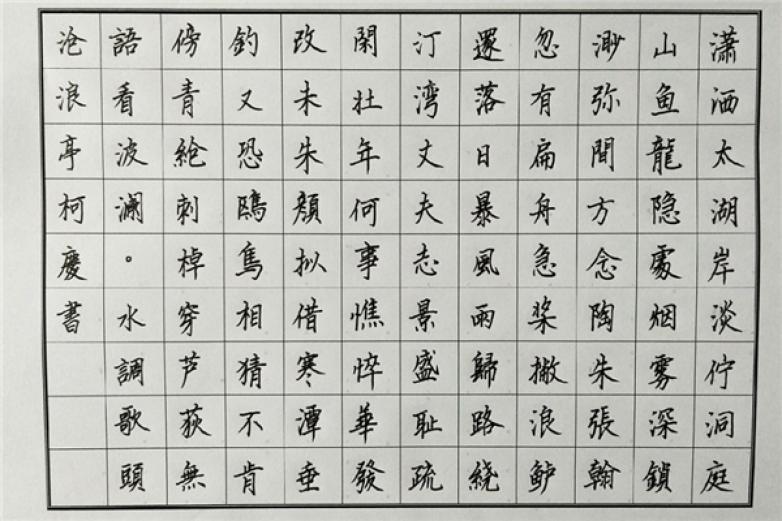 潇洒太湖岸淡伫洞庭
山鱼龍隐處烟雾深鎖
渺弥間方念陶朱張翰
忽有扁舟急桨撇浪鲈
還落日暴風雨歸路绕
汀湾丈夫志景盛耻疏
閑壮年何事憔悴華發
改未朱顔拟借寒潭垂
钓又恐鷗鳥相猜不肯
傍青綸刺棹穿芦荻無
語看波瀾。水調歌頭
沧浪亭柯慶書